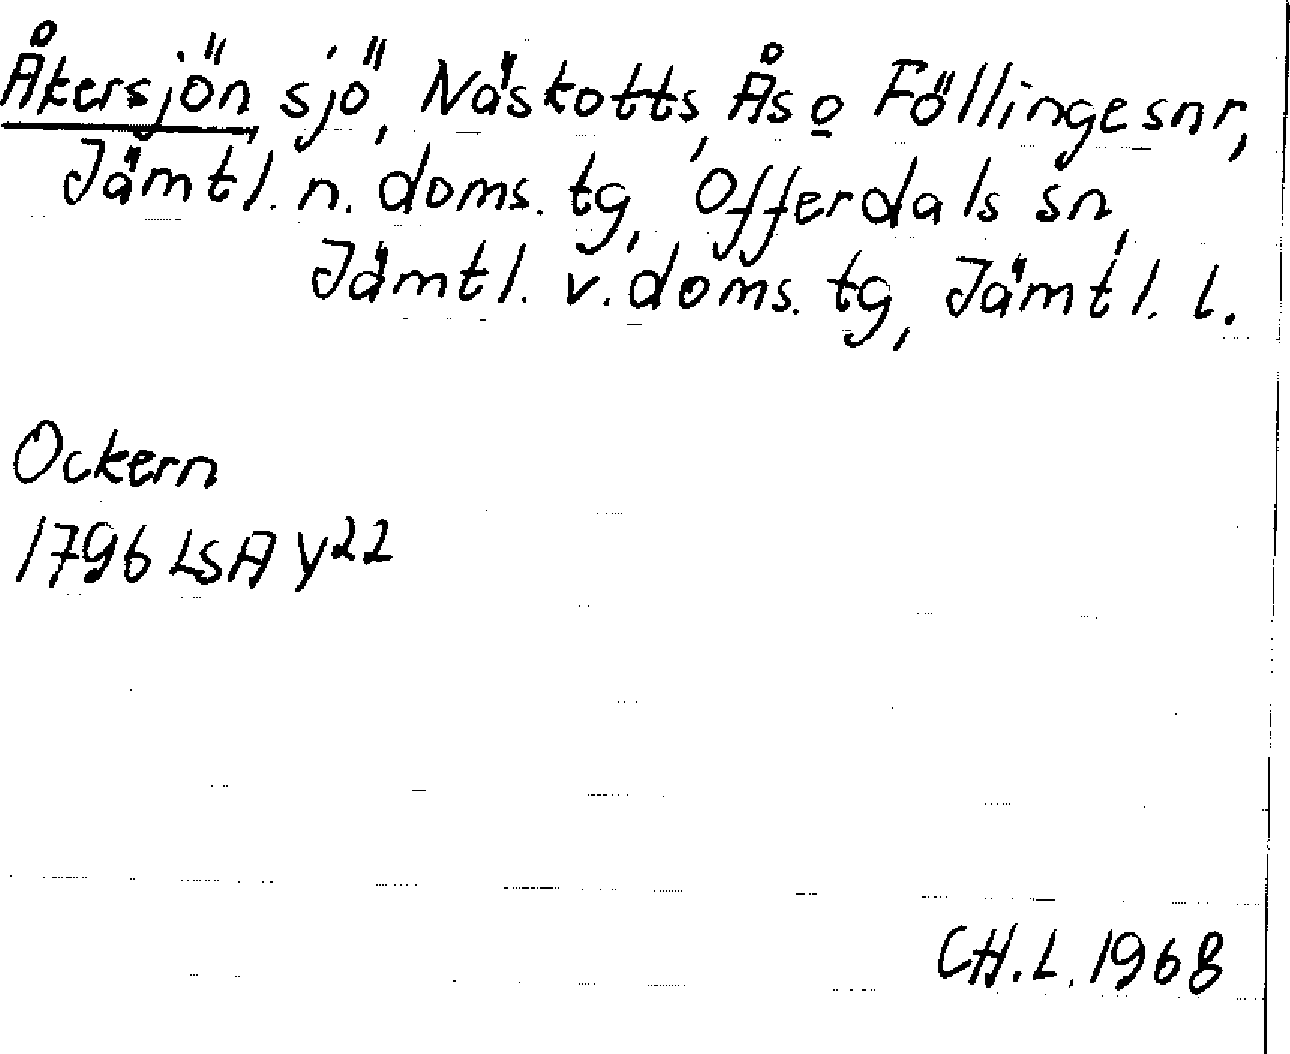 Åkersjön sjö, Näskotts, Ås o Föllinge snr,
Jämtl. n. doms. tg, Offerdals sn,
Jämtl. v. doms. tg, Jämtl. l.
Ockern
1796 LSA Y22
CH.L. 1968